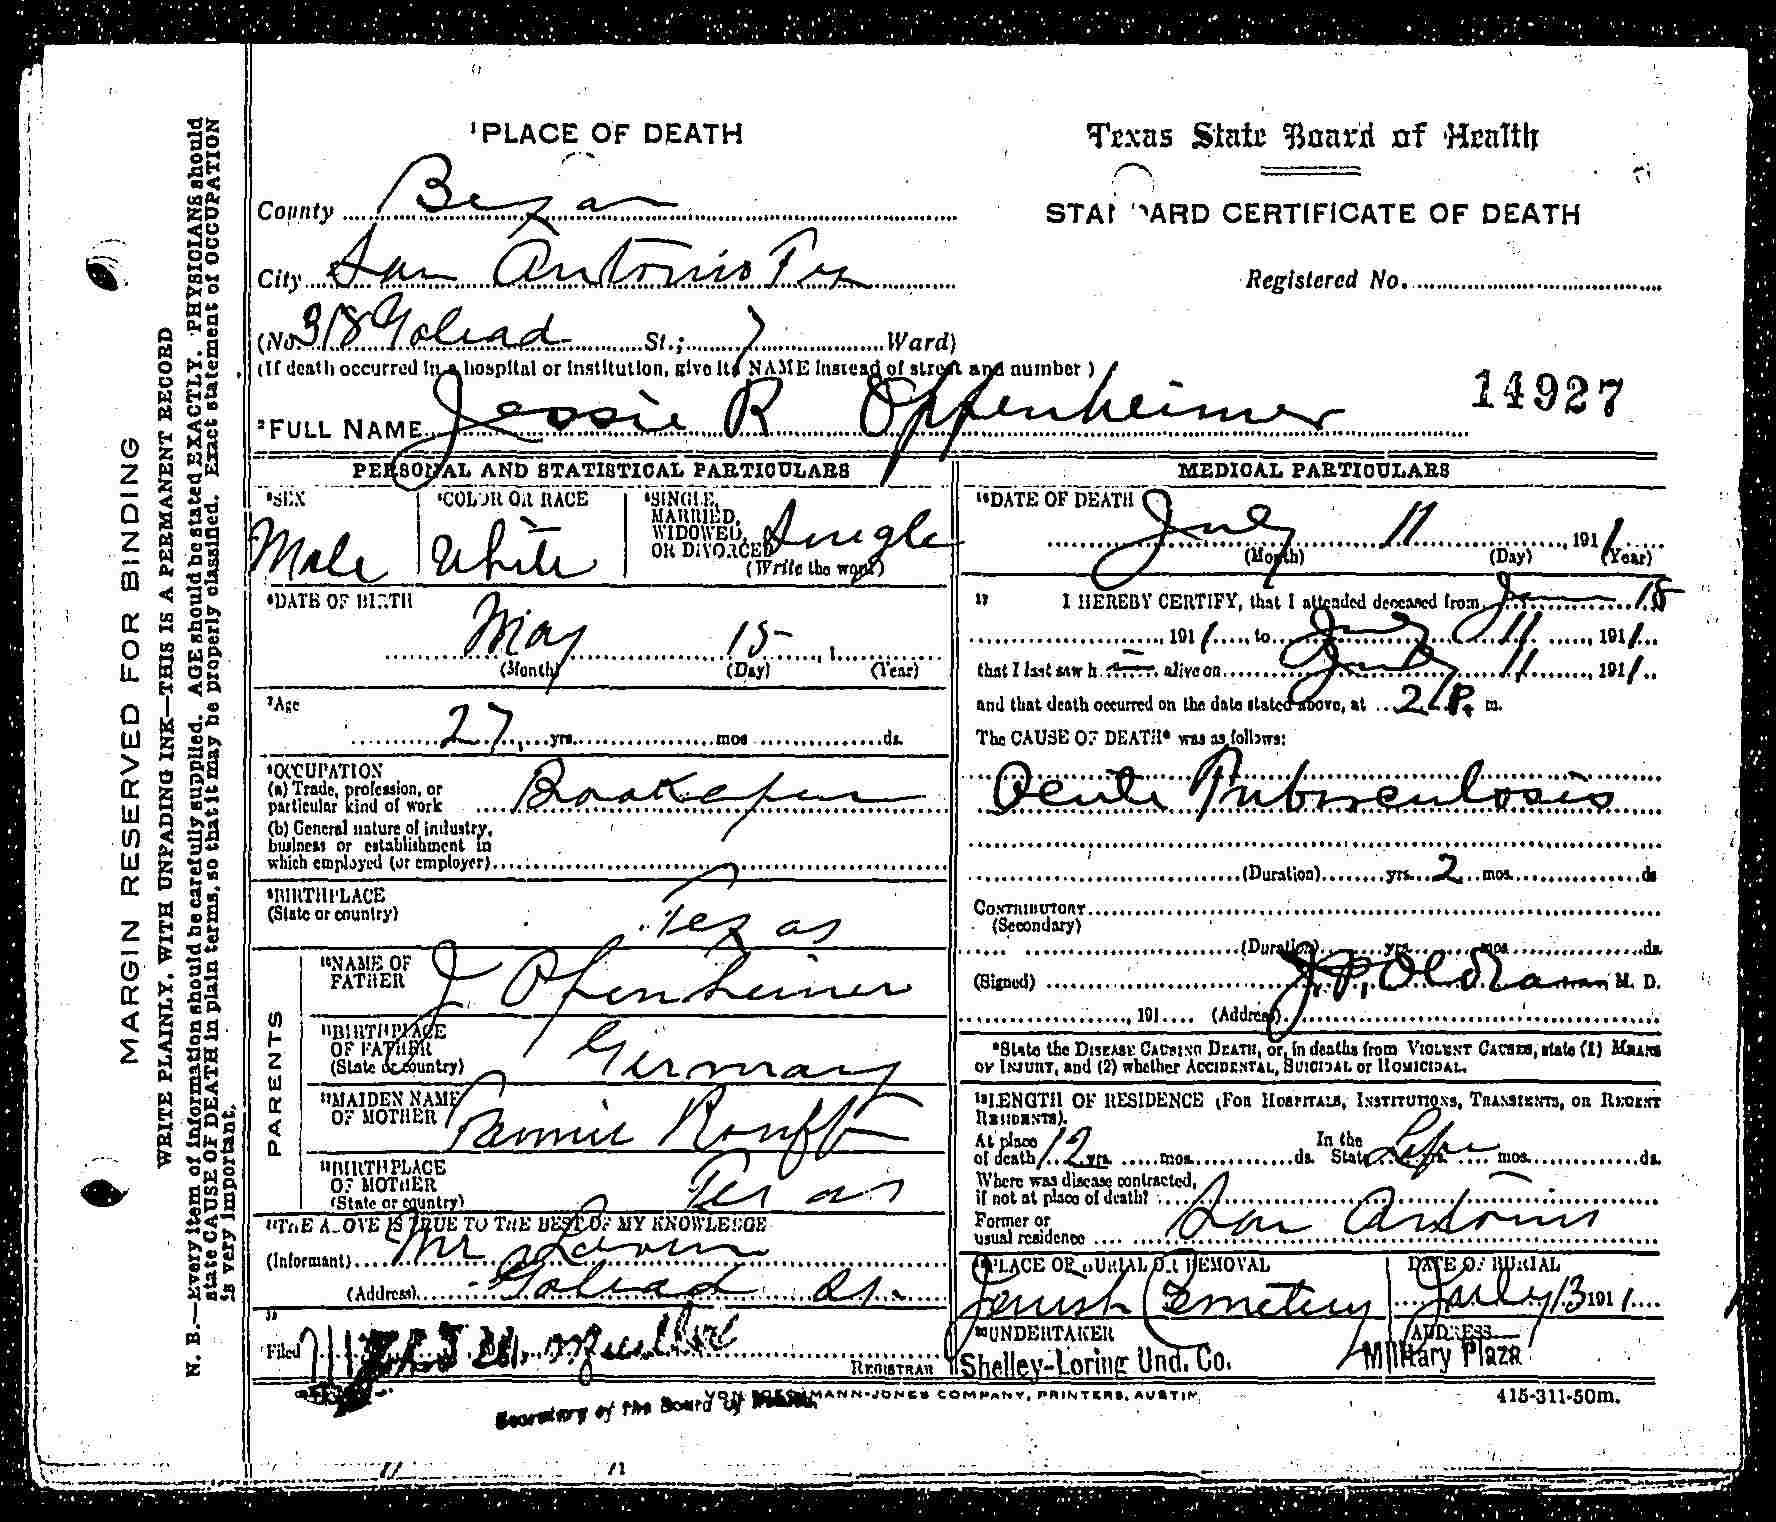 ¹PLACE OF DEATH
County Bexar
City San Antonio Tex
(No. 318 Goliad St.; 7 Ward)
(If death occurred in a hospital or institution, give its NAME instead of street and number )
²FULL NAME Jessie R Oppenheimer
Texas State Board of Health
STANDARD CERTIFICATE OF DEATH
Registered No.
14927
MARGIN RESERVED FOR BINDING
WRITE PLAINLY, WITH UNFADING INK—THIS IS A PERMANENT RECORD
N. B.—Every item of information should be carefully supplied. AGE should be stated EXACTLY. PHYSICIANS should
state CAUSE OF DEATH in plain terms, so that it may be properly classified. Exact statement of OCCUPATION
is very important.
PERSONAL AND STATISTICAL PARTICULARS
³SEX
Male
⁴COLOR OR RACE
White
⁵SINGLE,
MARRIED,
WIDOWED,
OR DIVORCED
Single
(Write the word)
⁶DATE OF BIRTH
May 15 , 1
(Month) (Day) (Year)
⁷Age
27 yrs. mos. ds.
⁸OCCUPATION
(a) Trade, profession, or
particular kind of work Bookeeper
(b) General nature of industry,
business or establishment in
which employed (or employer)
⁹BIRTHPLACE
(State or country)
Texas
PARENTS
¹⁰NAME OF
FATHER
J Opfenheimer
¹¹BIRTHPLACE
OF FATHER
(State or country)
Germany
¹²MAIDEN NAME
OF MOTHER
¹³BIRTHPLACE
OF MOTHER
(State or country)
Texas
¹⁴THE ABOVE IS TRUE TO THE BEST OF MY KNOWLEDGE
(Informant) Mr
(Address) Goliad St.
¹⁵
Filed
REGISTRAR
MEDICAL PARTICULARS
¹⁶DATE OF DEATH
July 11 , 1911
(Month) (Day) (Year)
¹⁷ I HEREBY CERTIFY, that I attended deceased from
, 1911, to July 11 , 1911
that I last saw h im alive on July 11 1911
and that death occurred on the date stated above, at 2 P. m.
The CAUSE OF DEATH* was as follows:
Acute Tuberculosis
(Duration) yrs. 2 mos. ds
CONTRIBUTORY
(Secondary)
(Duration) yrs. mos. ds.
(Signed) J. P. Oldham M. D.
, 191 (Address)
*State the DISEASE CAUSING DEATH, or, in deaths from VIOLENT CAUSES, state (1) MEANS
OF INJURY, and (2) whether ACCIDENTAL, SUICIDAL or HOMICIDAL.
¹⁸LENGTH OF RESIDENCE (FOR HOSPITALS, INSTITUTIONS, TRANSIENTS, OR RECENT
RESIDENTS).
At place of death 12 yrs. mos. ds. In the State Life yrs. mos. ds.
Where was disease contracted,
if not at place of death?
Former or
usual residence San Antonio
¹⁹PLACE OF BURIAL OR REMOVAL
Jewish Cemetery
DATE OF BURIAL
July 13 1911
²⁰UNDERTAKER
Shelley-Loring Und. Co.
ADDRESS
Military Plaza
VON BOECKMANN-JONES COMPANY, PRINTERS, AUSTIN
415-311-50m.
Secretary of the Board of Health.